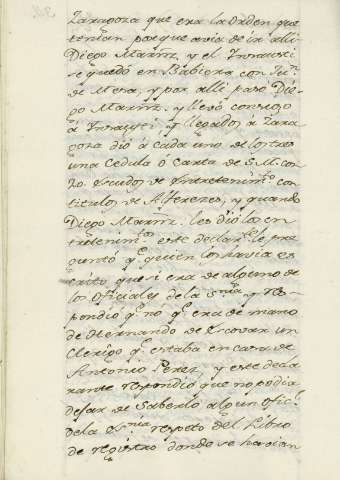 Zaragoza que era la orden que
tenian porque avia de ir alli
Diego Marñz, y el Insausti
se quedó en Babiera con Ju.º
de Mesa, y por alli pasó Die-
go Marñz, y llevó consigo
á Insausti y llegados á Zara
goza dió á cada uno de los tres
una Cedula ó Carta de S. M. con
20. escudos de entretenim.to con
titulos de Alferezes, y quando
Diego Marñz. les dió los en
tretenim.tos este declar.te le pre
guntó q.e quien los havia es
crito que si era de alguno de
los oficiales de la S.ria y res
pondio q.e no q.e era de mano
de Hernando de Escovar un
Clerigo q.e estaba en casa de
Antonio Perez, y este decla
rante respondió que no podia
dejar de saberlo algun ofic.l
de la S.ria respeto del Libro
de registro donde se hacian